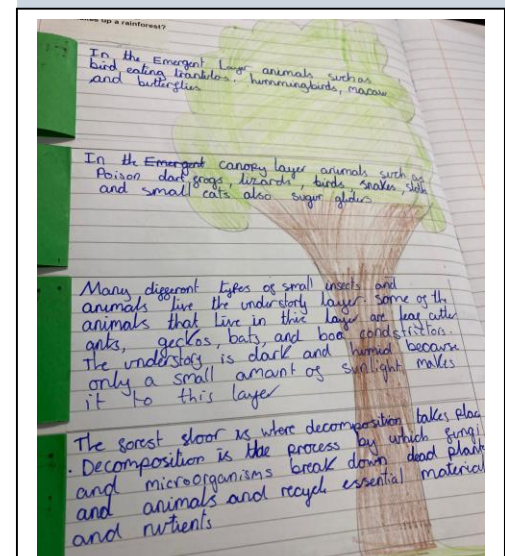 akes up a rainforest?
In the Emergent Layer, animals such as
bird eating trantulas, hummingbirds, macaw
and butterflies
In the Emergent canopy layer animals such as
Poison dart frogs, lizards, birds snakes, sloth
and small cats also sugar gliders
Many different types of small insects and
animals live the understory layer. some of the
animals that live in this layer are leaf cutter
ants, geckos, bats, and boa condstrittors.
The understory is dark and humid because
only a small amount of sunlight makes
it to this layer
The forest floor is where decomposition takes plac
. Decomposition is the process by which fungi
and microorganisms break down dead plant
and animals and recycle essential material
and nutients